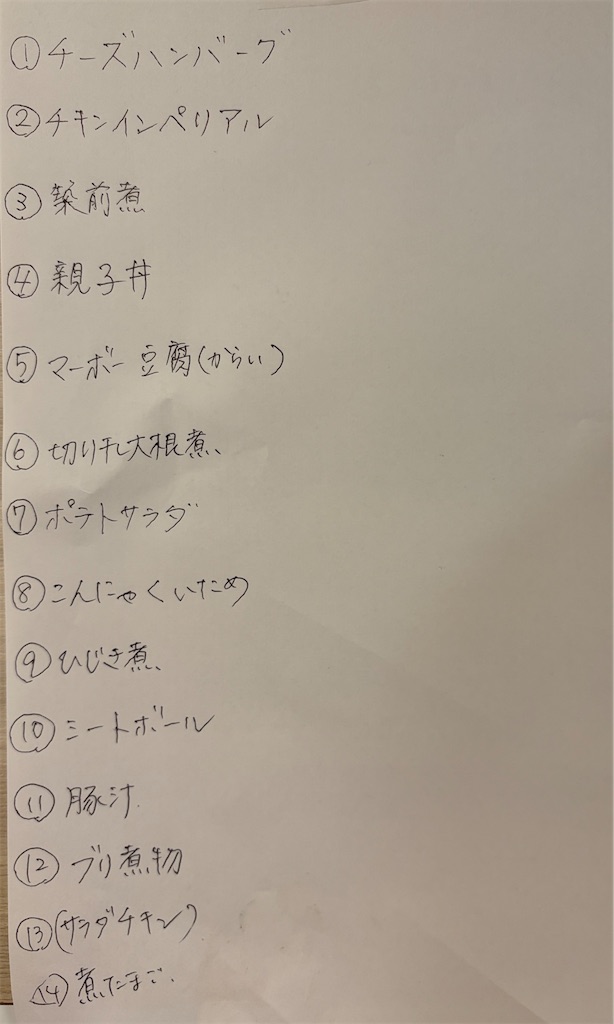 ①チーズハンバーグ
②チキンインペリアル
③築前煮
④親子丼
⑤マーボー豆腐(からい)
⑥切り干し大根煮
⑦ポテトサラダ
⑧こんにゃくいため
⑨ひじき煮
⑩ミートボール
⑪豚汁
⑫ブリ煮物
⑬(サラダチキン)
⑭煮たまご